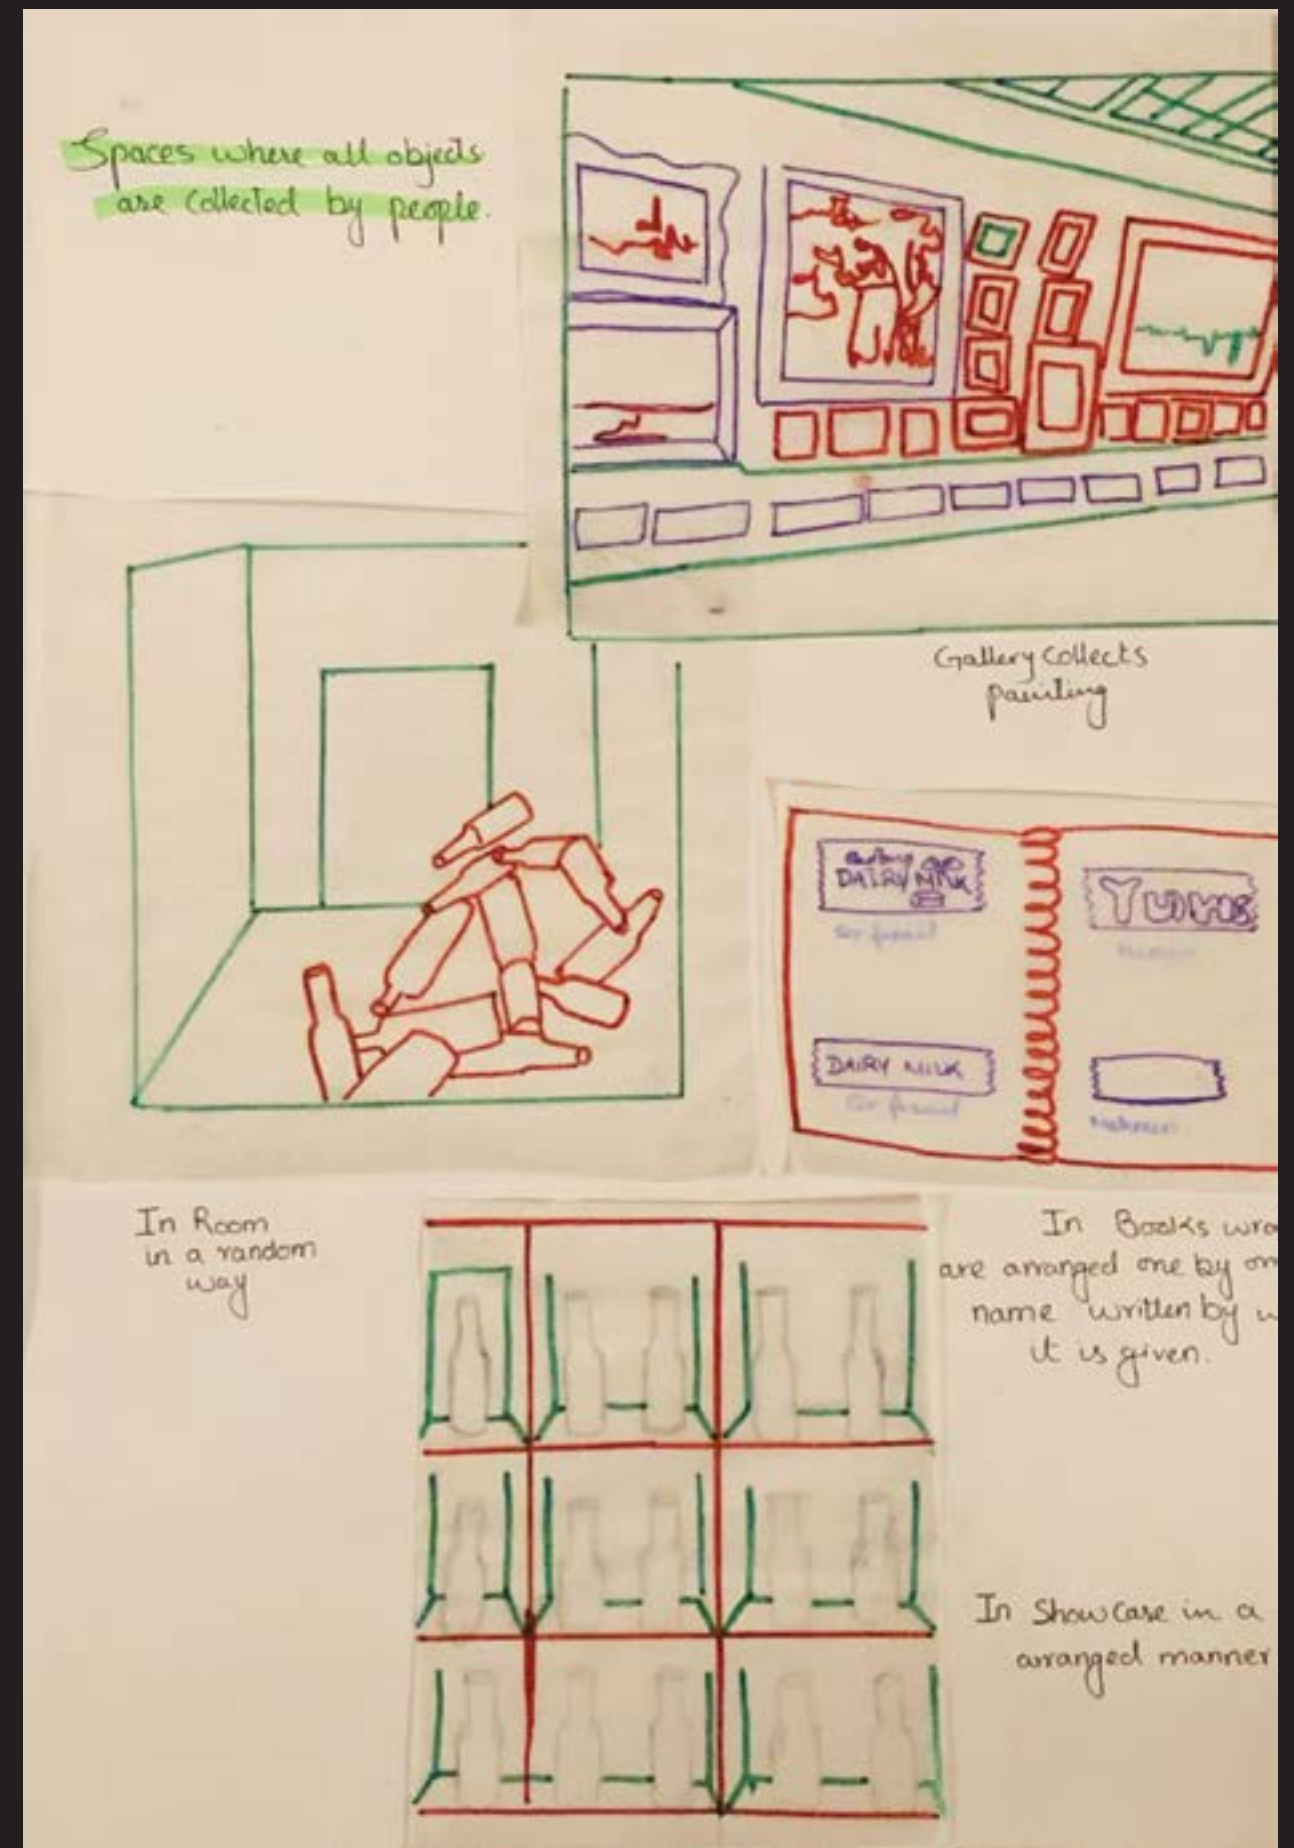 Spaces where all objects
are collected by people.
Gallery collects
painting
DAIRY MILK
DAIRY MILK
In Room
in a random
way
In Books wra
are arranged one by on
name written by w
it is given.
In Showcase in a
arranged manner